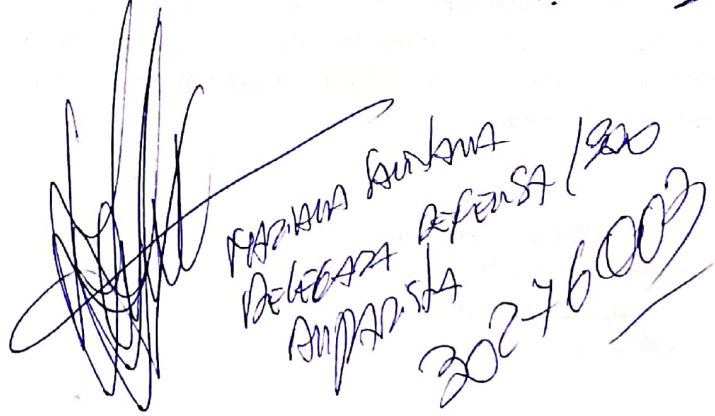 MARIANA SANTANA
DELEGADA DEFENSA
AMPARISTA
30276003